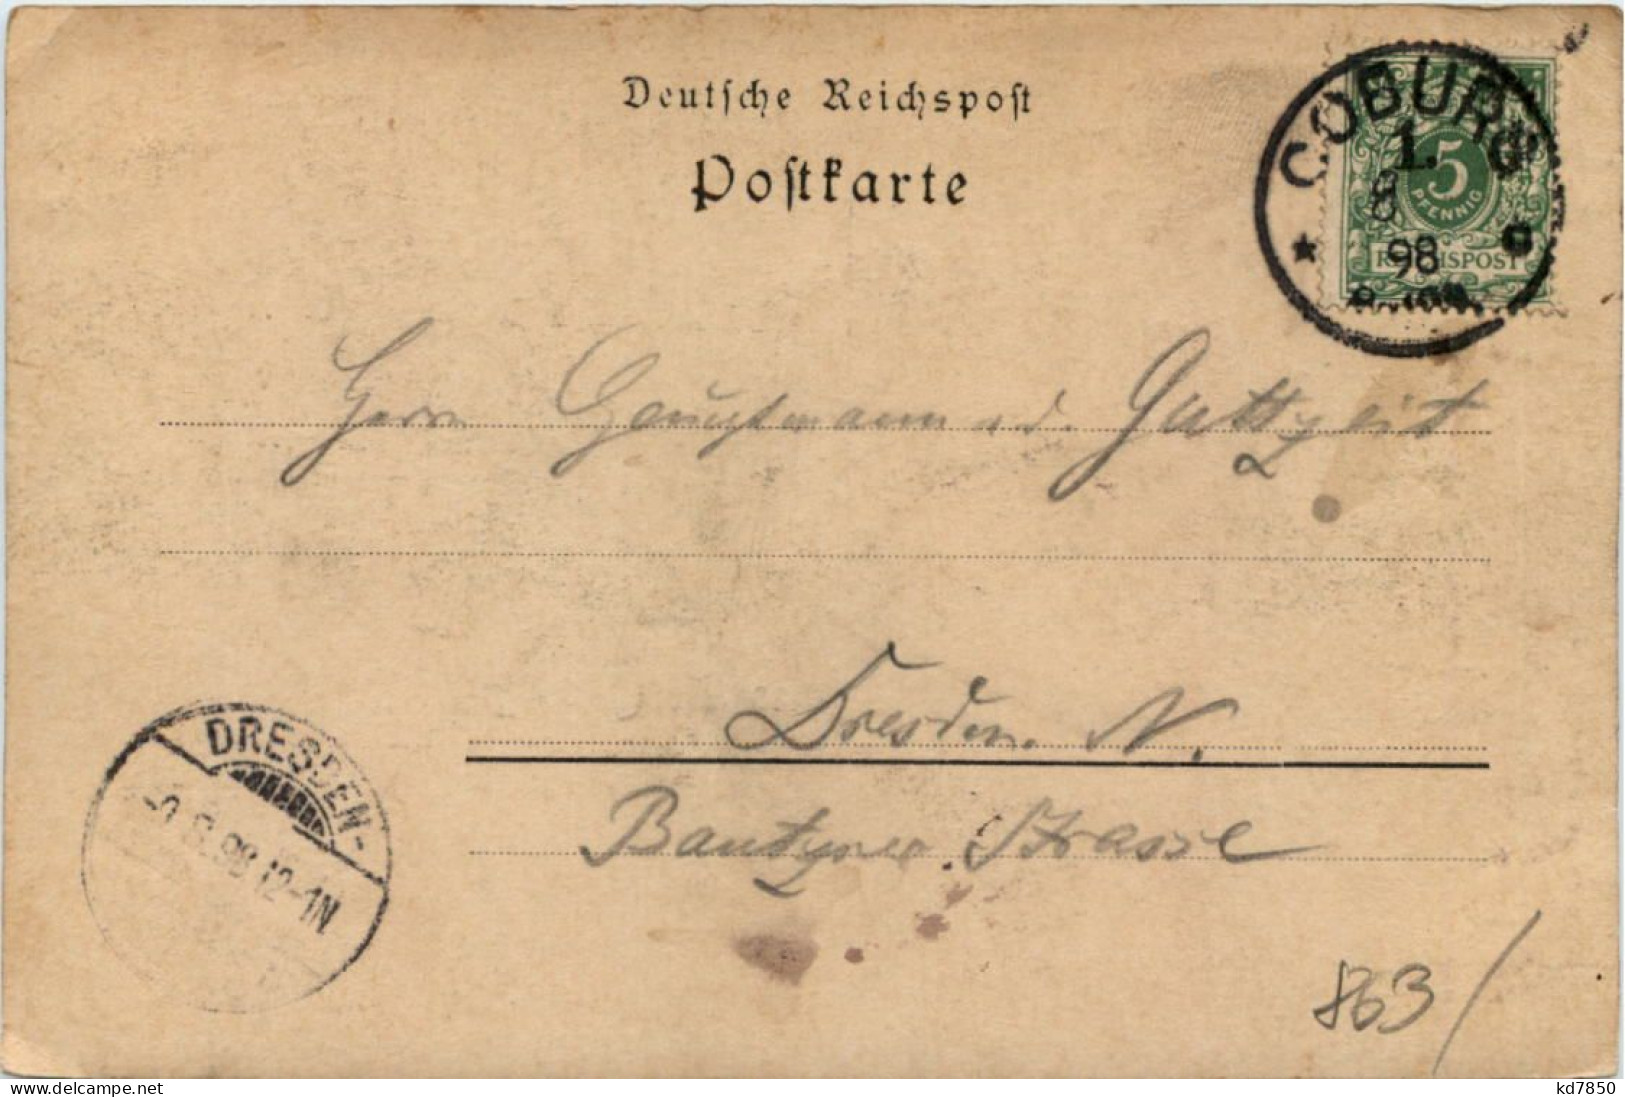 Deutsche Reichspost
Postkarte
COBURG
1.
8
98
5
PFENNIG
REICHSPOST
Herrn Hauptmann a. d. Guttzeit
Dresden. N.
Bautzner Strasse
DRESDEN-
8.98 12-1N
863/
www.delcampe.net
kd7850